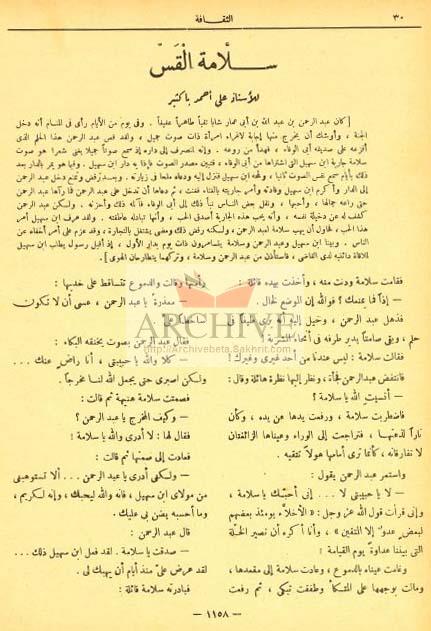 ٣٠
الثقافة
سلّامة القَسّ
للأستاذ علي أحمد باكثير
[ كان عبد الرحمن بن عبد الله بن أبي عمار شابا تقياً طاهراً عفيفاً . وفي يوم من الأيام رأى في المنام أنه دخل
الجنة ، وأوشك أن يخرج منها إجابة لإغراء امرأة ذات صوت جميل ، ولقد قص عبد الرحمن هذا الحلم الذي
أفزعه على صديقه أبي الوفاء ، فهدأ من روعه . وإنه انصرف إلى داره إذ سمع صوتاً جميلا يغني شعراً هو صوت
سلامة جارية ابن سهيل التي اشتراها من أبي الوفاء ، فتبين مصدر الصوت فإذا به دار ابن سهيل . وفيما هو يمر بالدار بعد
ذلك بأيام سمع نفس الصوت ثانيا ، ولمحه ابن سهيل فنزل إليه ودعاه ملحا في زيارته . وبعد رفض وتمنع دخل عبد الرحمن
إلى الدار وأكرم ابن سهيل وفادته وأمر جاريته بالغناء فغنت ، ثم دعاها أن تدخل على عبد الرحمن فما رآها عبد الرحمن
حتى راعه جمالها ، وأحبها ، ونقل بعض الناس نبأ ذلك إلى أبي الوفاء فآلمه ذلك وأحزنه . ولكن عبد الرحمن
كشف له عن دخيلة نفسه ، وأنه يحب هذه الجارية أصدق الحب ، وأنها تبادله عاطفته . ولقد عرف ابن سهيل أمر
هذا الحب ، فحاول أن يهب سلامة لعبد الرحمن ، ولكنه رفض ذلك ومضى يشتغل بالتجارة ، وقد عزم على أمر أخفاه عن
الناس . وبينا ابن سهيل وعبد الرحمن وسلامة يتسامرون ذات يوم بدار الأول ، إذ أقبل رسول يطلب ابن سهيل
للاقاة دائنيه لدى القاضي ، فاستأذن من عبد الرحمن وسلامة ، وتركهما يتطارحان الهوى ] .
فقامت سلامة ودنت منه ، وأخذت بيده قائلة :
— إذاً فما يمنعك ؟ فوالله إن الموضع لخال .
فذهل عبد الرحمن ، وخيل إليه أنه يرى طيفاً في
حلم ، وبقي صامتاً يدير طرفه في أنحاء المشربة
فقالت سلامة : ليس عندنا من أحد غيري وغيرك !
فانتفض عبد الرحمن فجأة ، ونظر إليها نظرة هائلة وقال :
— أنسيت الله يا سلامة ؟
فاضطربت سلامة ، ورفعت يدها عن يده ، وكأن
ناراً لذعتها ، فتراجعت إلى الوراء وعيناها الزائغتان
لا تفارقانه ، كأنما ترى أمامها هولاً تتقيه .
واستمر عبد الرحمن يقول :
— لا يا حبيبتي لا ... إني أحبك يا سلامة ،
وإني قرأت قول الله عز وجل : « الأخلاء يومئذ بعضهم
لبعض عدو إلا المتقين » ، وأنا أكره أن تصير الخلة
التي بيننا عداوة يوم القيامة !
وغامت عيناه بالدموع ، وعادت سلامة إلى مقعدها ،
ومالت بوجهها على المتكأ وطفقت تبكي ، ثم رفعت
رأسها وقالت والدموع تتساقط على خديها :
— معذرة يا عبد الرحمن ، عسى أن لا تكون
فقال عبد الرحمن بصوت يخنقه البكاء :
— كلا والله يا حبيبتي ، أنا راض عنك ...
ولكن اصبري حتى يجعل الله لنا مخرجاً .
فصمتت سلامة هنيهة ثم قالت :
— وكيف المخرج يا عبد الرحمن ؟
فقال لها : لا أدري والله يا سلامة !
فعادت إلى صمتها ثم قالت :
— ولكني أدري يا عبد الرحمن ... ألا تستوهبني
من مولاي ابن سهيل ، فانه والله ليحبك ، وإنه لكريم ،
وما أحسبه يضن بي عليك .
قال عبد الرحمن :
— صدقت يا سلامة . لقد فعل ابن سهيل ذلك ...
لقد عرض علىّ منذ أيام أن يهبك لي .
فبادرته سلامة قائلة :
— ١١٥٨ —
ARCHIVE
http://Archivebeta.Sakhrit.com